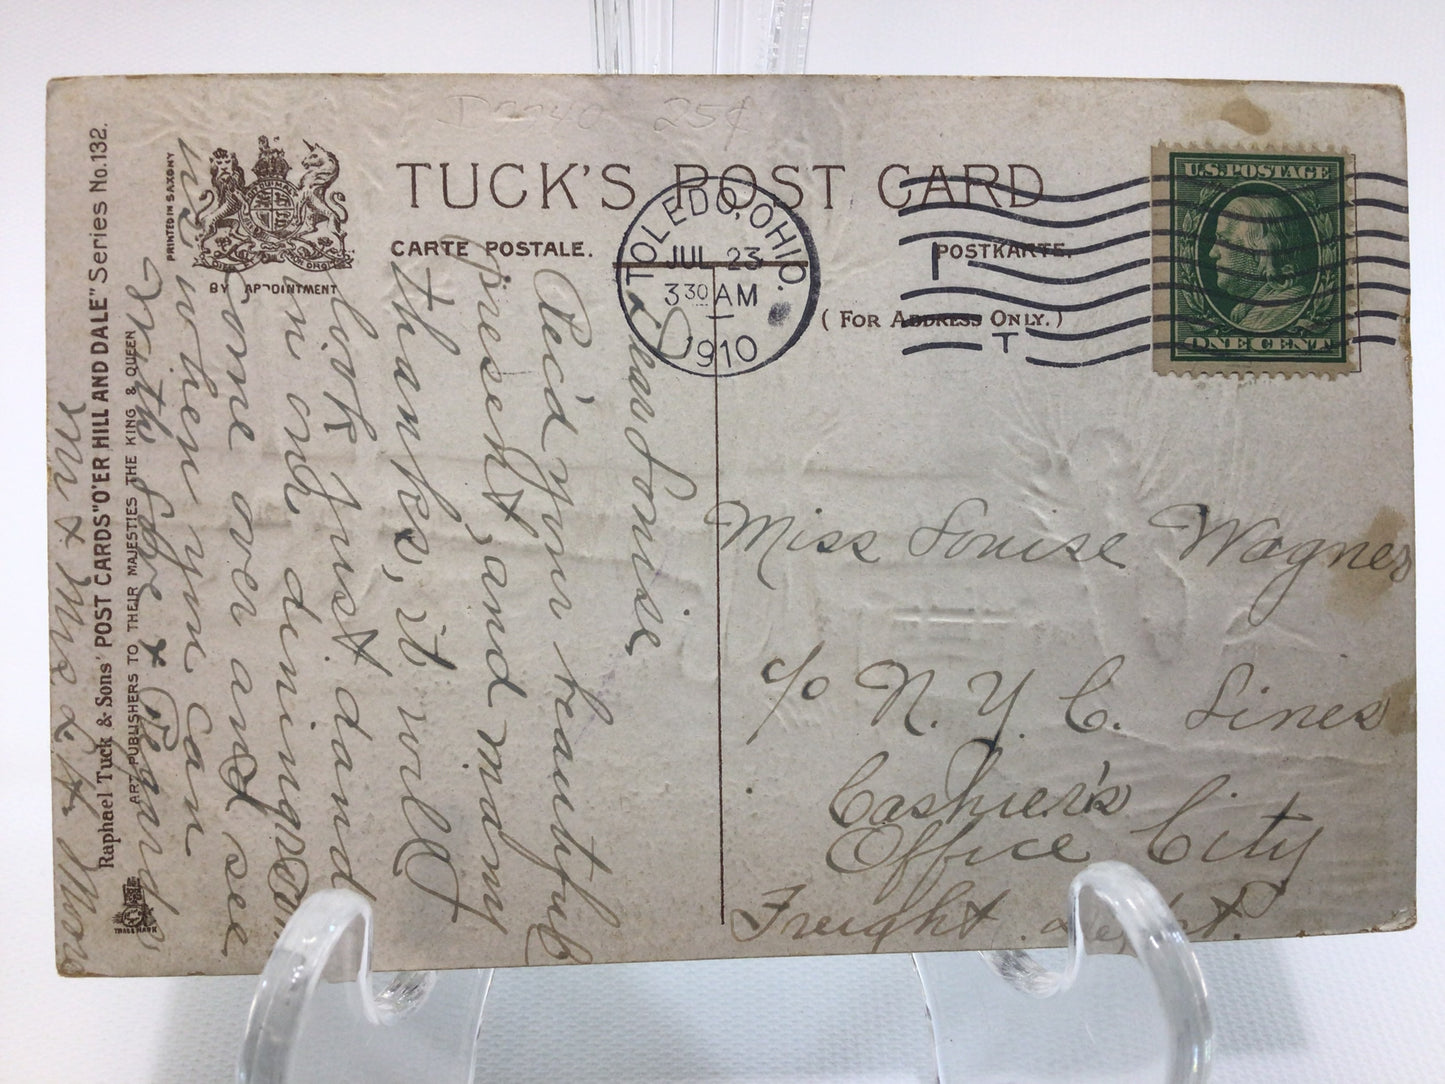 D2240 25¢
TUCK'S POST CARD
CARTE POSTALE.
POSTKARTE.
(FOR ADDRESS ONLY.)
PRINTED IN SAXONY
BY APPOINTMENT
TOLEDO, OHIO.
JUL 23
3 30 AM
1910
T
U.S. POSTAGE
ONE CENT
Raphael Tuck & Sons' POST CARDS "O'ER HILL AND DALE" Series No. 132.
ART PUBLISHERS TO THEIR MAJESTIES THE KING & QUEEN
TRADE MARK
Dear Louise
Rec'd your beautiful
present, and many
thanks, it will
look just dandy
in our dining rm.
Come over and see
us when you can
With Love & Regards
Mr & Mrs
Miss Louise Wagner
c/o N. Y. C. Lines
Cashier's
Office City
Freight Dep't.